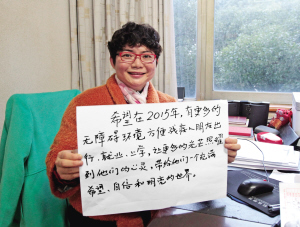 希望在2015年，有更多的
无障碍环境方便残疾人朋友出
行、就业、上学，让更多的光芒照耀
到他们的心灵，带给他们一个充满
希望、自信和明亮的世界。